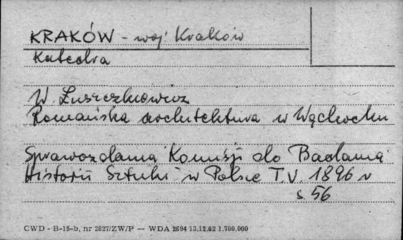 KRAKÓW - woj Kraków
Katedra
W. Łuszczkiewicz
Romańska architektura w Wąchocku
Sprawozdania Komisji do Badania
Historii Sztuki w Polsce T.V. 1896 r
s 56
CWD - B-15-b, nr 2827/ZW/P — WDA 2694 13.12.62 1.700.000